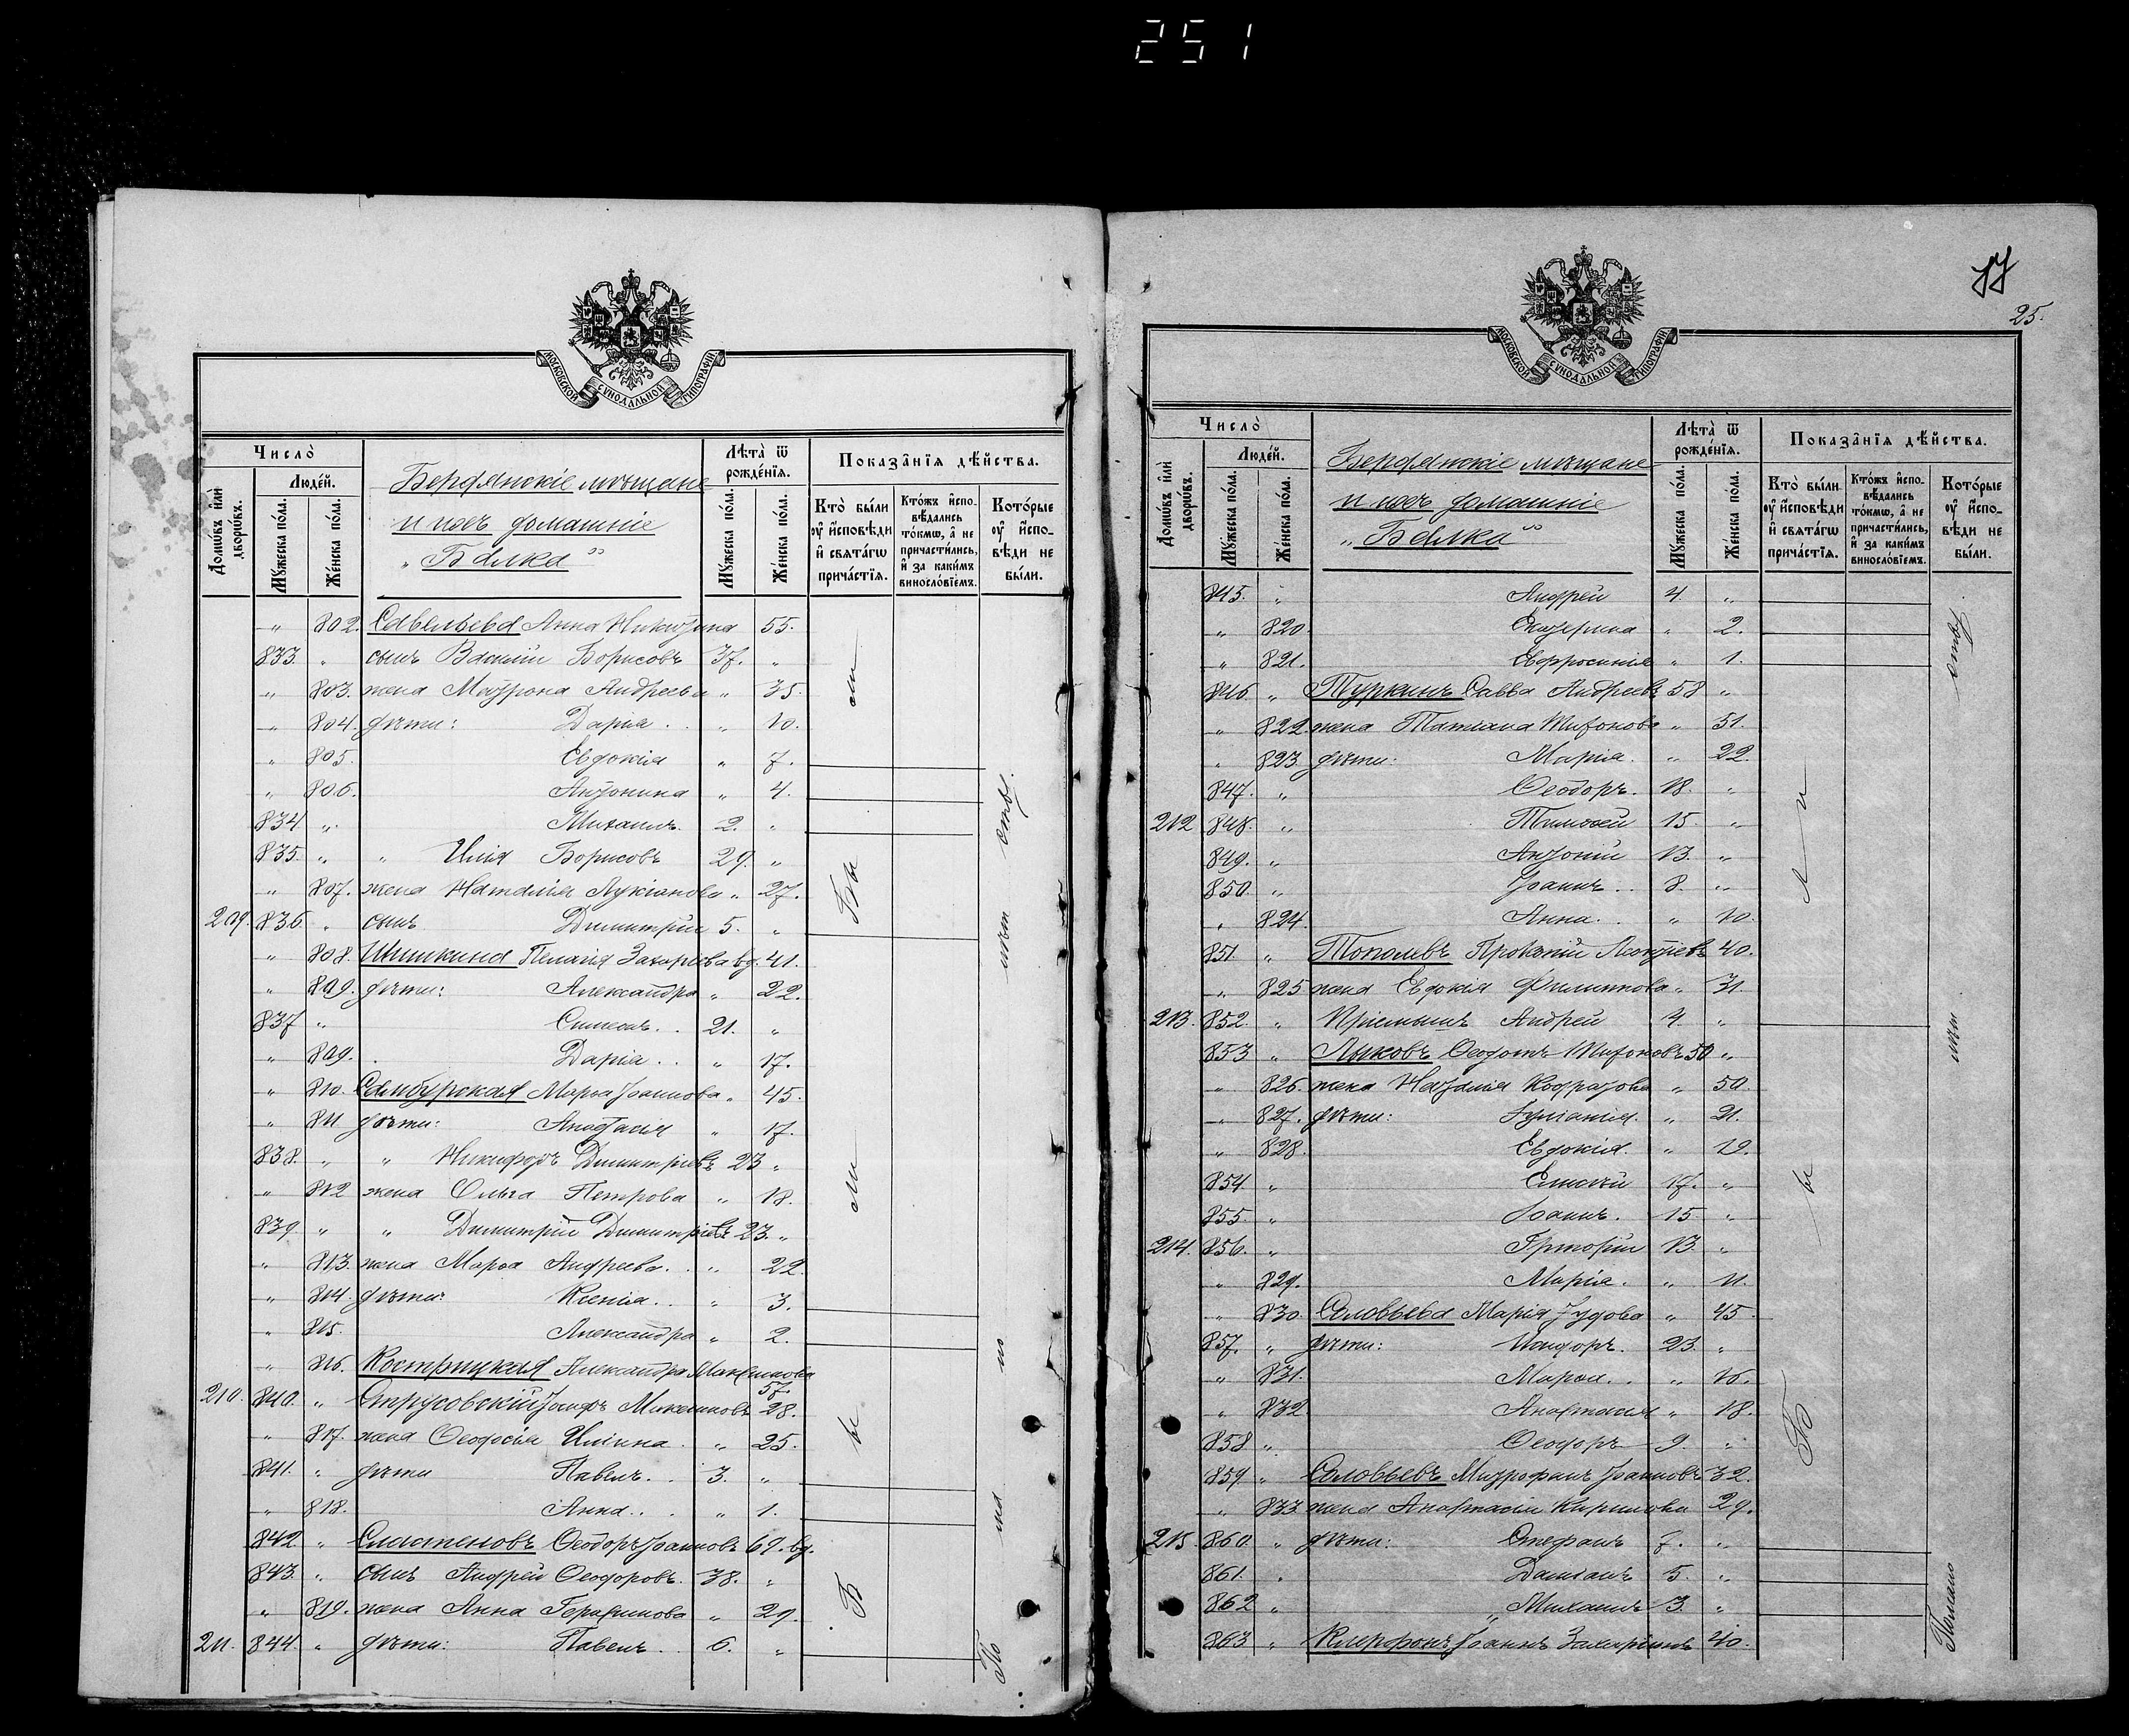 251
МОСКОВСКОЙ СѴНОДАЛЬНОЙ ТИПОГРАФІИ
Число̀
Людéй.
Домѡ́въ и҆лѝ дворѡ́въ.
Мꙋ́жеска по́ла.
Же́нска по́ла.
Бердянскіе мѣщане
и ихъ домашніе
„Балка“
Лѣта̀ ѿ рожде́нїѧ.
Мꙋ́жеска по́ла.
Же́нска по́ла.
Показа̑нїѧ дѣ́йства.
Кто̀ бы́ли ᲂу҆ и҆сповѣди и҆ свѧта́гѡ прича́стїѧ.
Кто́жъ и҆спо­вѣ́дались то́кмѡ, а҆ не причасти́лись, и҆ за каки́мъ винослов́їемъ.
Кото́рые ᲂу҆ и҆спо­вѣди не бы́ли.
„ 802. Савельева Анна Никитина 55.
833. „ сынъ Василій Борисовъ 37. „
„ 803. жена Матрона Андреева „ 35.
„ 804. дѣти: Дарія „ 10.
„ 805. Евдокія „ 7.
„ 806. Антонина „ 4.
834 „ Михаилъ. 2. „
835. „ „ Илія Борисовъ 29. „
„ 807. жена Наталія Лукіанова „ 27.
209. 836. „ сынъ Димитрій 5. „
„ 808. Шишкина Пелагія Захаріева вд. 41.
„ 809. дѣти: Александра „ 22.
837 „ Симеонъ 21. „
„ 809. Дарія „ 17.
„ 810. Самбурская Марѳа Іоаннова „ 45.
„ 811 дѣти: Анастасія „ 17.
838. „ „ Никифоръ Димитріевъ 23 „
„ 812 жена Ольга Петрова „ 18.
839. „ „ Димитрій Димитріевъ 23. „
„ 813. жена Марѳа Андреева „ 22.
„ 814. дѣти: Ксенія „ 3.
„ 815. Александра „ 2.
„ 816. Кострицкая Александра Максимова 57.
210. 840. „ Іосифъ Максимовъ 28.
„ 817. жена Ѳеодосія Иліина „ 25.
841. „ дѣти Павелъ 3. „
„ 818. Анна „ 1.
842. „ Сластеновъ Ѳеодоръ Іоанновъ 69. вд.
843. „ сынъ Андрей Ѳеодоровъ. 38. „
„ 819. жена Анна Герасимова „ 29.
211. 844. „ дѣти: Павелъ 6. „
Бы ли
Бы ли
По на но нѣт ств.
25.
МОСКОВСКОЙ СѴНОДАЛЬНОЙ ТИПОГРАФІИ
Число̀
Людéй.
Домѡ́въ и҆лѝ дворѡ́въ.
Мꙋ́жеска по́ла.
Же́нска по́ла.
Бердянскіе мѣщане
и ихъ домашніе
„Балка“
Лѣта̀ ѿ рожде́нїѧ.
Мꙋ́жеска по́ла.
Же́нска по́ла.
Показа̑нїѧ дѣ́йства.
Кто̀ бы́ли ᲂу҆ и҆сповѣди и҆ свѧта́гѡ прича́стїѧ.
Кто́жъ и҆спо­вѣ́дались то́кмѡ, а҆ не причасти́лись, и҆ за каки́мъ винослов́їемъ.
Кото́рые ᲂу҆ и҆спо­вѣди не бы́ли.
845. „ Андрей 4. „
„ 820. Екатерина „ 2.
„ 821. Евфросинія „ 1.
846. „ Туркинъ Савва Андреевъ 58 „
„ 822 жена Татіана Тихонова „ 51.
„ 823 дѣти: Марія. „ 22.
847. „ Ѳеодоръ. 18. „
212 848. „ Тимоѳей 15. „
849. „ Антоній 13. „
850. „ Іоаннъ 8. „
„ 824. Анна. „ 10.
851. „ Тополевъ Прокопій Леонтіевъ 40.
„ 825 жена Евдокія Филиппова „ 31.
213. 852. „ Пріемышъ Андрей 4. „
853 „ Лыковъ Ѳеодотъ Тихоновъ 50 „
„ 826. жена Наталія Кодратова „ 50.
„ 827. дѣти: Іуліанія. „ 21.
„ 828. Евдокія. „ 19.
854. „ Елисей 17. „
855. „ Іоаннъ. 15. „
214. 856. „ Григорій 13. „
„ 829. Марія. „ 11.
„ 830. Соловьева Марія Іудова „ 45.
857. „ дѣти: Исидоръ. 23. „
„ 831. Марѳа „ 16.
„ 832 Анастасія „ 18.
858 „ Ѳеодоръ 9. „
859 „ Соловьевъ Митрофанъ Іоанновъ 32.
„ 833 жена Анастасія Кириллова 29.
215. 860. „ дѣти: Стефанъ 7. „
861. „ Даміанъ 5. „
862 „ Михаилъ 3. „
863 „ Іоаннъ Захаріинъ 40.
Б ы л и
нѣт ств.